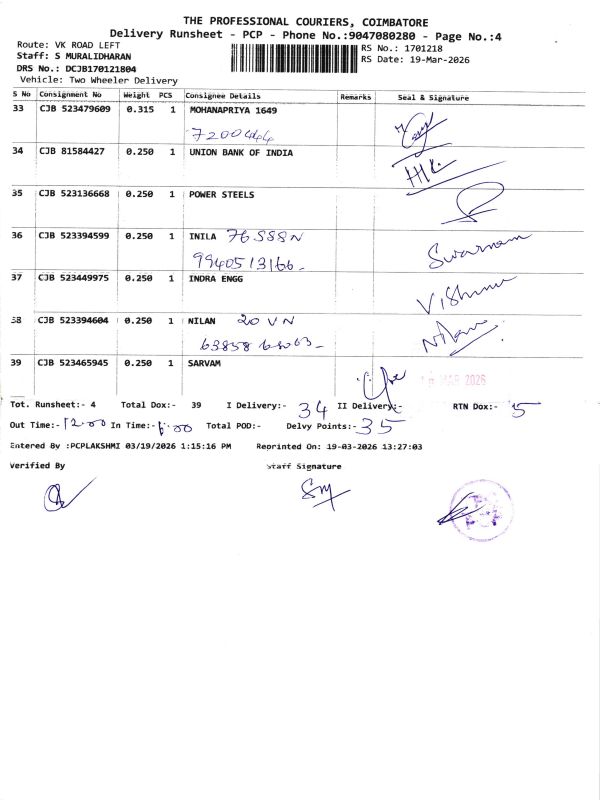 THE PROFESSIONAL COURIERS, COIMBATORE
Delivery Runsheet - PCP - Phone No.:9047080280 - Page No.:4
Route: VK ROAD LEFT
RS No.: 1701218
Staff: S MURALIDHARAN
RS Date: 19-Mar-2026
DRS No.: DCJB170121804
Vehicle: Two Wheeler Delivery
S No Consignment No Weight PCS Consignee Details Remarks Seal & Signature
33 CJB 523479609 0.315 1 MOHANAPRIYA 1649
7200444
34 CJB 81584427 0.250 1 UNION BANK OF INDIA
35 CJB 523136668 0.250 1 POWER STEELS
36 CJB 523394599 0.250 1 INILA
9940513166 Swarnam
37 CJB 523449975 0.250 1 INDRA ENGG Vishnu
38 CJB 523394604 0.250 1 NILAN 20 VN
39 CJB 523465945 0.250 1 SARVAM
MAR 2026
Tot. Runsheet:- 4 Total Dox:- 39 I Delivery:- 34 II Delivery:- RTN Dox:- 5
Out Time:- 12.00 In Time:- 6.00 Total POD:- Delvy Points:- 35
Entered By :PCPLAKSHMI 03/19/2026 1:15:16 PM Reprinted On: 19-03-2026 13:27:03
Verified By Staff Signature